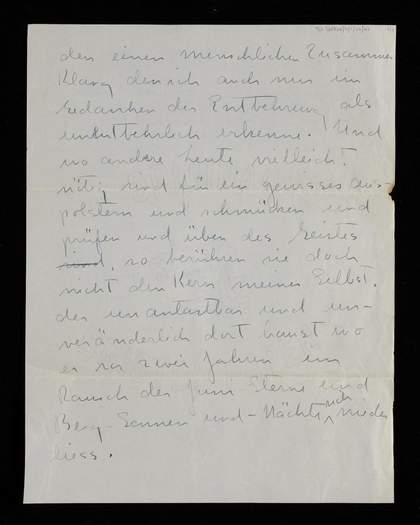 den einen menschlichen Zusammen
Klang den ich auch nur im
Gedanken der Entbehrung als
unentbehrlich erkenne. Und
wo andere heute vielleicht
nötig sind für ein gewisses aus-
polstern und schmücken und
prüfen und üben des Geistes
sind, so berühren sie doch
nicht den Kern meines Selbst.
der unantastbar und un-
veränderlich dort haust wo
er vor zwei Jahren im
Rausch der Juni Sterne und
Berg-Sonnen und-Nächte sich nieder
liess.